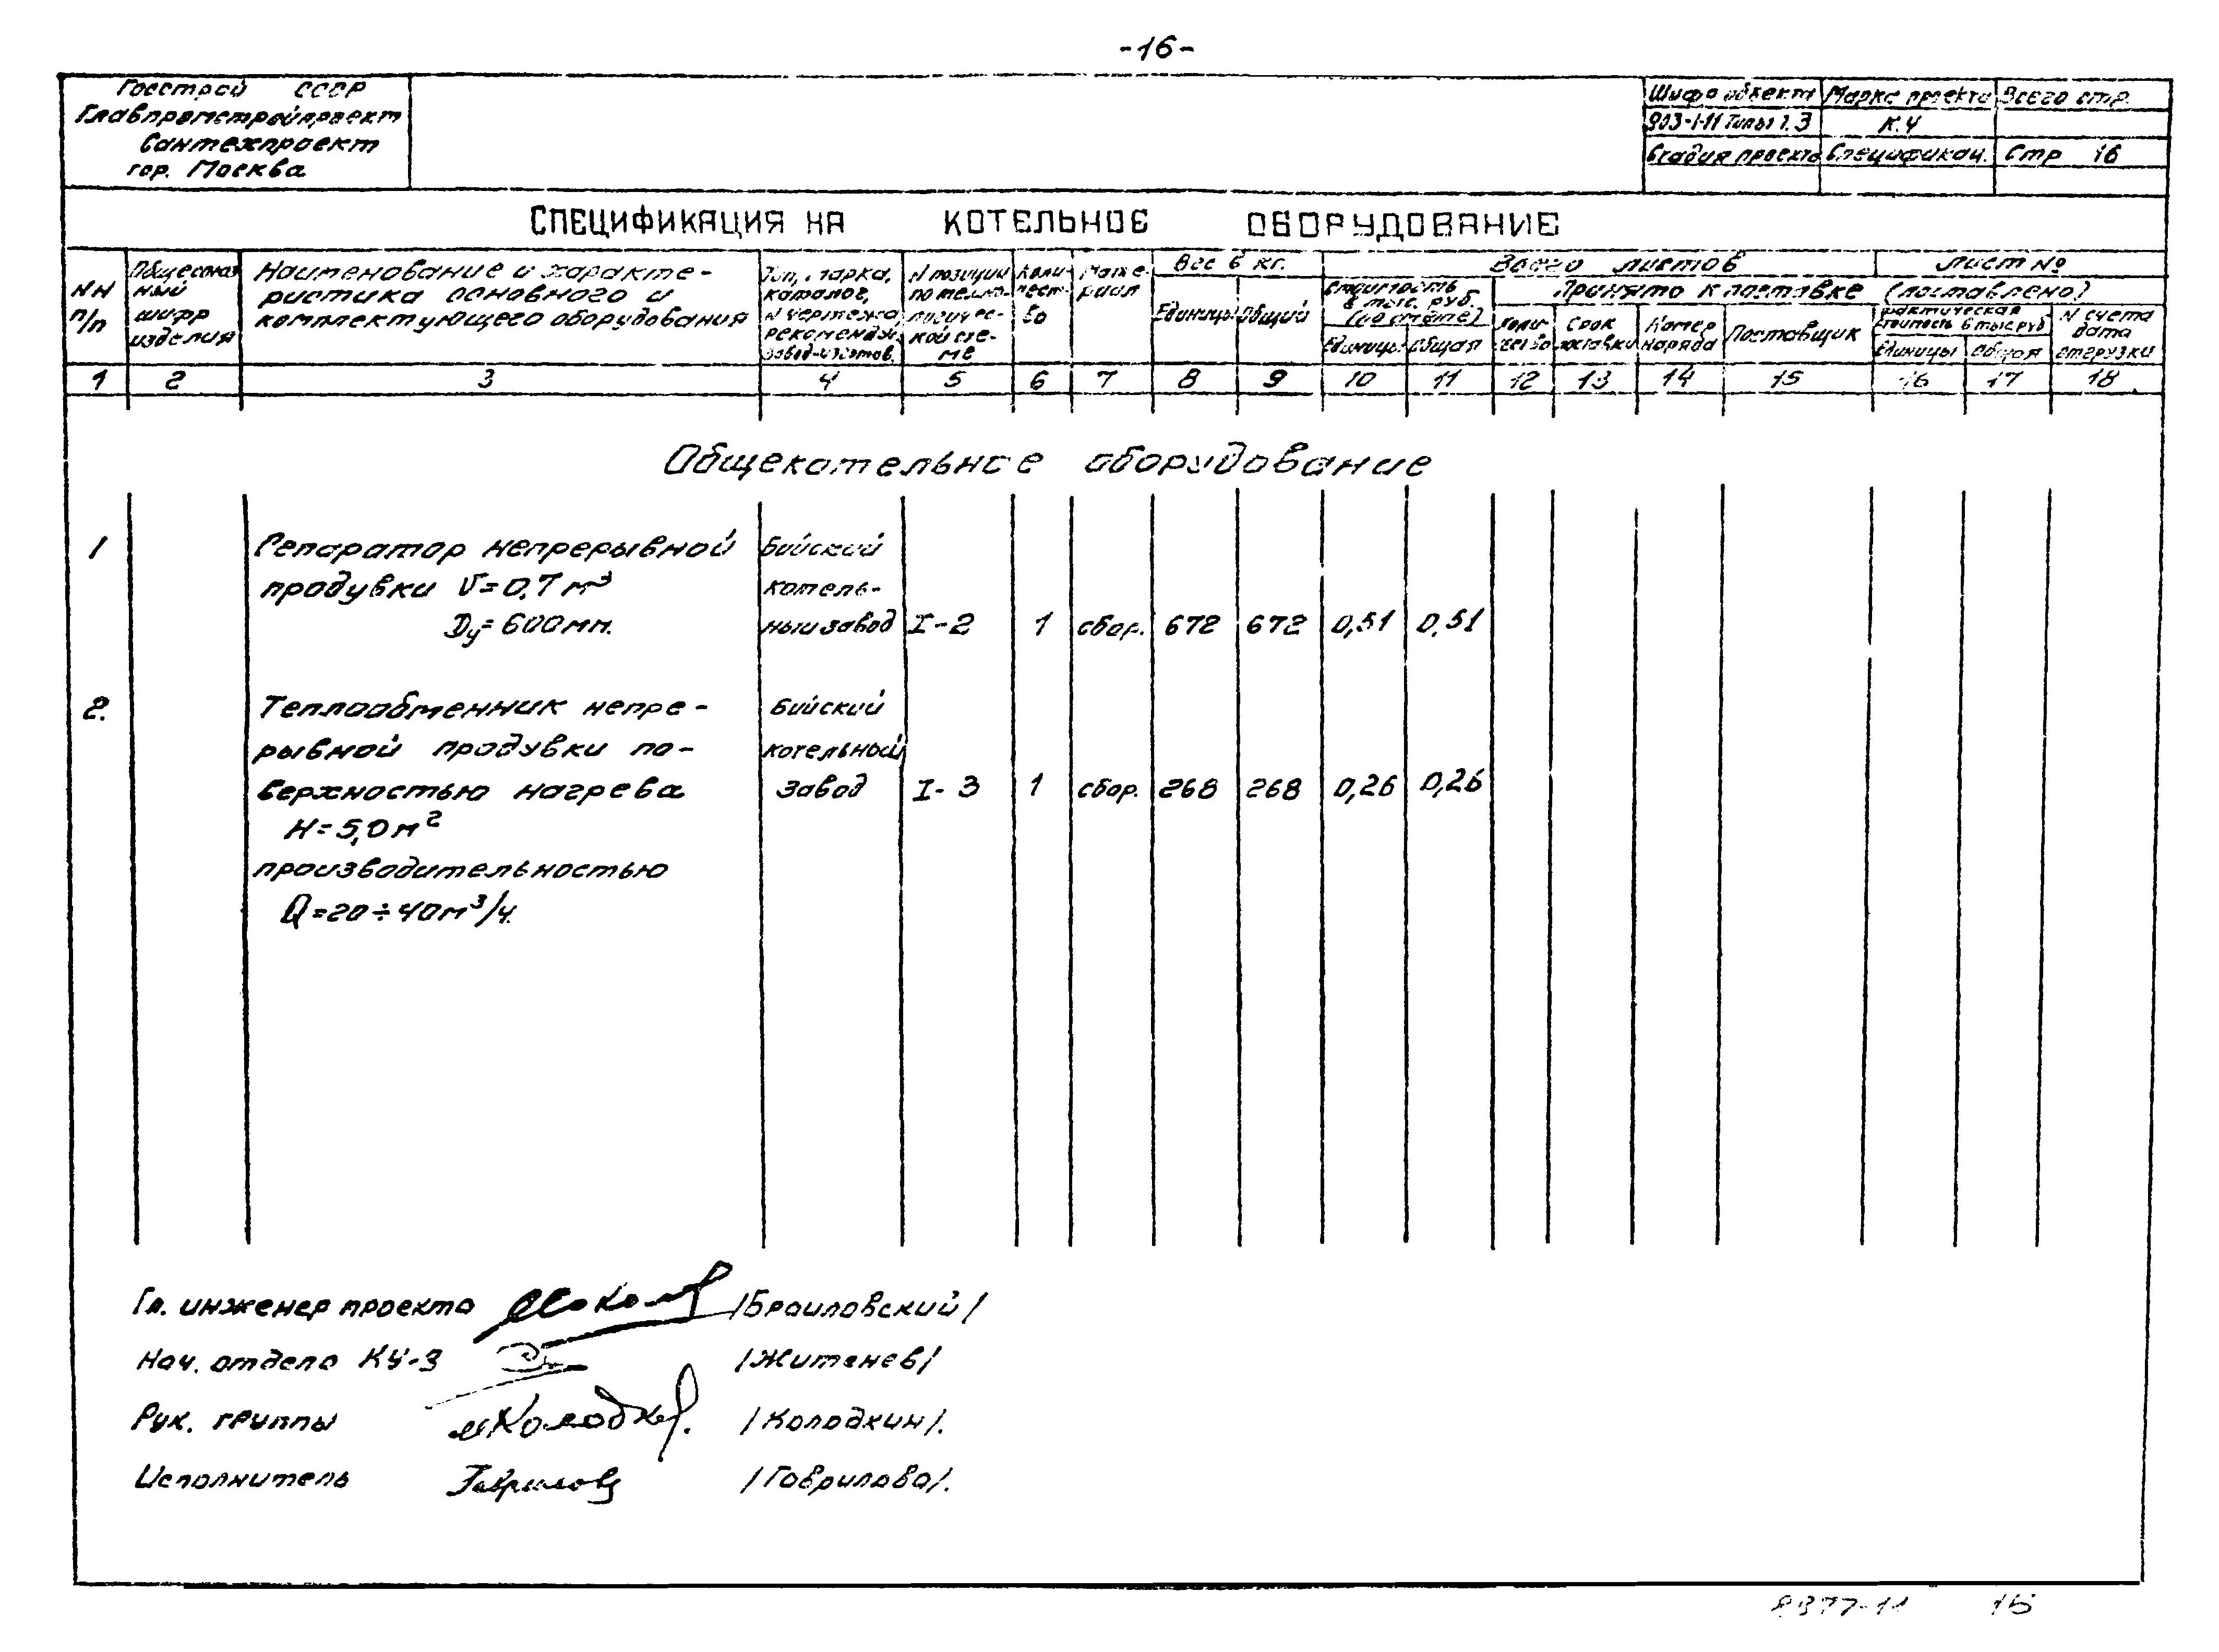 -16-
Госстрой СССР
Главпромстройпроект
Сантехпроект
гор. Москва
Шифр объекта Марка проекта Всего стр.
903-1-11 Типы 1.3 К.4
Стадия проекта Спецификац. Стр 16
СПЕЦИФИКАЦИЯ НА КОТЕЛЬНОЕ ОБОРУДОВАНИЕ
NN
п/п
Общесоюз
ный
шифр
изделия
Наименование и характе-
ристика основного и
комплектующего оборудования
Тип, марка,
каталог,
N чертежа,
рекоменд.
завод-изготов.
N позиции
по техно-
логичес-
кой схе-
ме
Коли-
чест-
во
Мате-
риал
Вес в кг.
Единицы Общий
Всего листов Лист №
Стоимость
в тыс. руб.
(по смете)
Единицы Общая
Принято к поставке (поставлено)
Коли-
чество
Срок
поставки
Номер
наряда
Поставщик
фактическая
стоимость в тыс.руб
Единицы Общая
N счета
дата
отгрузки
1 2 3 4 5 6 7 8 9 10 11 12 13 14 15 16 17 18
Общекотельное оборудование
1 Сепаратор непрерывной Бийский
продувки V=0,7м³ котель-
Dу=600мм. ный завод I-2 1 сбор. 672 672 0,51 0,51
2. Теплообменник непре- Бийский
рывной продувки по- котельный
верхностью нагрева завод I-3 1 сбор. 268 268 0,26 0,26
H=5,0м²
производительностью
Q=20÷40м³/ч.
Гл. инженер проекта /Браиловский/
Нач. отдела КУ-3 /Житенев/
Рук. группы /Колодкин/.
Исполнитель Гаврилова /Гаврилова/.
8377-11 16